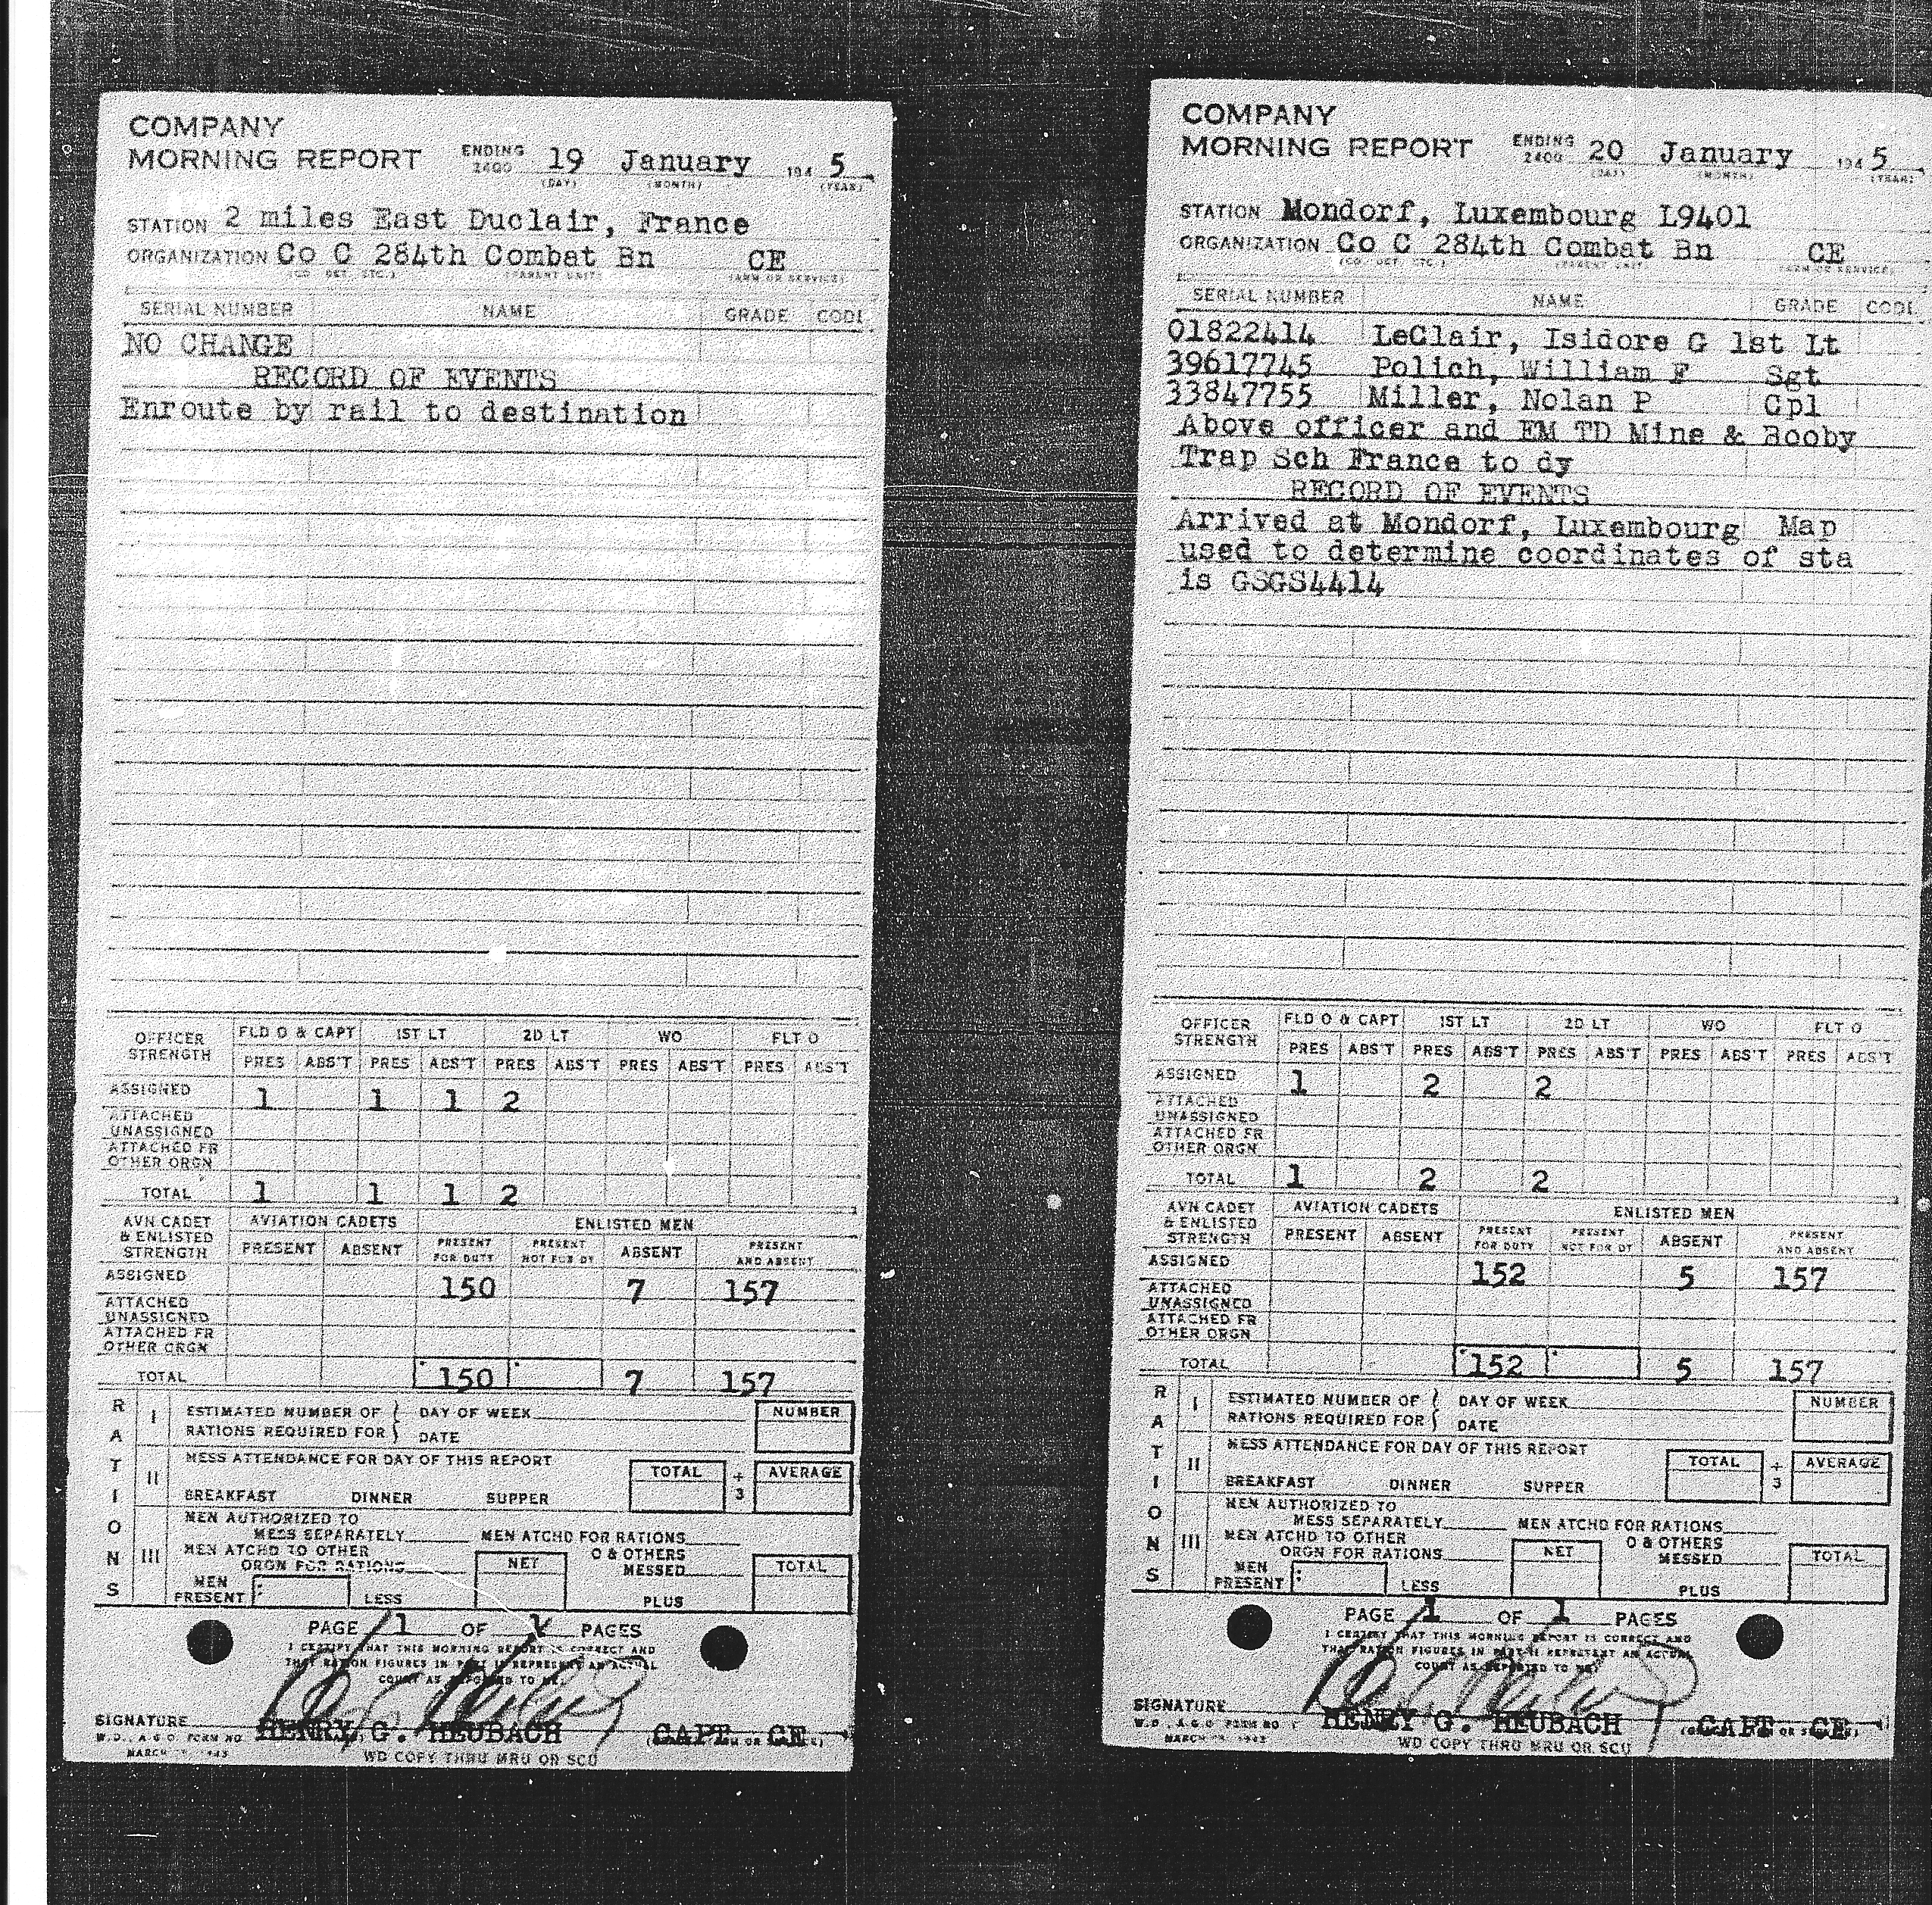 COMPANY
MORNING REPORT ENDING 2400 19 January 194 5
(DAY) (MONTH) (YEAR)
STATION 2 miles East Duclair, France
ORGANIZATION Co C 284th Combat Bn CE
(CO DET ETC.) (PARENT UNIT) (ARM OR SERVICE)
SERIAL NUMBER NAME GRADE CODE
NO CHANGE
RECORD OF EVENTS
Enroute by rail to destination
OFFICER STRENGTH FLD O & CAPT 1ST LT 2D LT WO FLT O
PRES ABS'T PRES ABS'T PRES ABS'T PRES ABS'T PRES ABS'T
ASSIGNED 1 1 1 2
ATTACHED
UNASSIGNED
ATTACHED FR
OTHER ORGN
TOTAL 1 1 1 2
AVN CADET & ENLISTED STRENGTH AVIATION CADETS ENLISTED MEN
PRESENT ABSENT PRESENT FOR DUTY PRESENT NOT FOR DY ABSENT PRESENT AND ABSENT
ASSIGNED 150 7 157
ATTACHED
UNASSIGNED
ATTACHED FR
OTHER ORGN
TOTAL 150 7 157
RATIONS
I ESTIMATED NUMBER OF DAY OF WEEK NUMBER
RATIONS REQUIRED FOR DATE
II MESS ATTENDANCE FOR DAY OF THIS REPORT TOTAL ÷ 3 AVERAGE
BREAKFAST DINNER SUPPER
III MEN AUTHORIZED TO
MESS SEPARATELY MEN ATCHD FOR RATIONS
MEN ATCHD TO OTHER
ORGN FOR RATIONS NET O & OTHERS MESSED TOTAL
MEN PRESENT LESS PLUS
PAGE 1 OF 1 PAGES
I CERTIFY THAT THIS MORNING REPORT IS CORRECT AND
THAT RATION FIGURES IN PART II REPRESENT AN ACTUAL
COUNT AS REPORTED TO ME.
SIGNATURE HENRY G. HEUBACH CAPT CE
W.D., A.G.O. FORM NO
MARCH 1943
WD COPY THRU MRU OR SCU
COMPANY
MORNING REPORT ENDING 2400 20 January 194 5
(DAY) (MONTH) (YEAR)
STATION Mondorf, Luxembourg L9401
ORGANIZATION Co C 284th Combat Bn CE
(CO DET ETC.) (PARENT UNIT) (ARM OR SERVICE)
SERIAL NUMBER NAME GRADE CODE
01822414 LeClair, Isidore G 1st Lt
39617745 Polich, William F Sgt
33847755 Miller, Nolan P Cpl
Above officer and EM TD Mine & Booby
Trap Sch France to dy
RECORD OF EVENTS
Arrived at Mondorf, Luxembourg Map
used to determine coordinates of sta
is GSGS4414
OFFICER STRENGTH FLD O & CAPT 1ST LT 2D LT WO FLT O
PRES ABS'T PRES ABS'T PRES ABS'T PRES ABS'T PRES ABS'T
ASSIGNED 1 2 2
ATTACHED
UNASSIGNED
ATTACHED FR
OTHER ORGN
TOTAL 1 2 2
AVN CADET & ENLISTED STRENGTH AVIATION CADETS ENLISTED MEN
PRESENT ABSENT PRESENT FOR DUTY PRESENT NOT FOR DY ABSENT PRESENT AND ABSENT
ASSIGNED 152 5 157
ATTACHED
UNASSIGNED
ATTACHED FR
OTHER ORGN
TOTAL 152 5 157
RATIONS
I ESTIMATED NUMBER OF DAY OF WEEK NUMBER
RATIONS REQUIRED FOR DATE
II MESS ATTENDANCE FOR DAY OF THIS REPORT TOTAL ÷ 3 AVERAGE
BREAKFAST DINNER SUPPER
III MEN AUTHORIZED TO
MESS SEPARATELY MEN ATCHD FOR RATIONS
MEN ATCHD TO OTHER
ORGN FOR RATIONS NET O & OTHERS MESSED TOTAL
MEN PRESENT LESS PLUS
PAGE 1 OF 1 PAGES
I CERTIFY THAT THIS MORNING REPORT IS CORRECT AND
THAT RATION FIGURES IN PART II REPRESENT AN ACTUAL
COUNT AS REPORTED TO ME.
SIGNATURE HENRY G. HEUBACH CAPT CE
W.D., A.G.O. FORM NO 1
MARCH 1943
WD COPY THRU MRU OR SCU